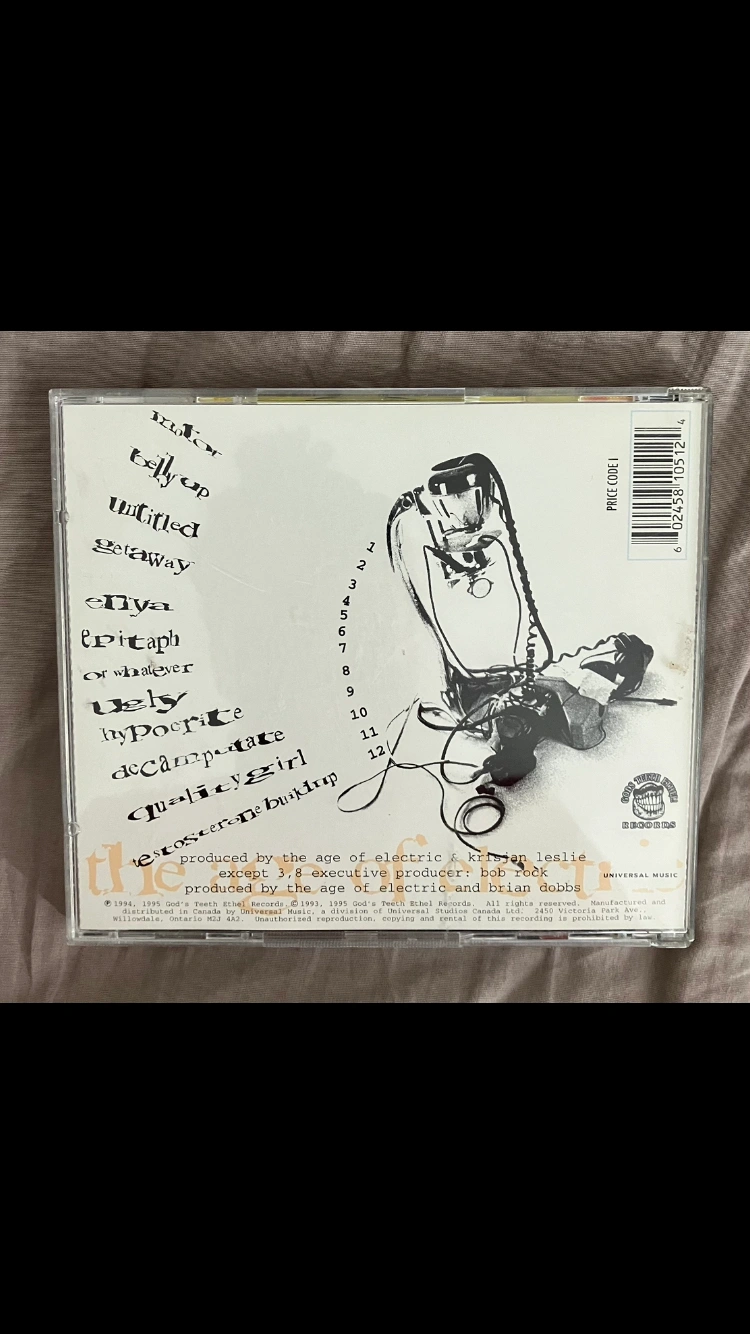 motor
belly up
untitled
getaway
enya
epitaph
or whatever
ugly
hypocrite
decamputate
qualitygirl
testosterone buildup
1
2
3
4
5
6
7
8
9
10
11
12
PRICE CODE I
6 02458 10512 4
GODS TEETH ETHEL
RECORDS
the age of electric
produced by the age of electric & krisjan leslie
except 3,8 executive producer: bob rock
produced by the age of electric and brian dobbs
UNIVERSAL MUSIC
℗ 1994, 1995 God's Teeth Ethel Records. © 1993, 1995 God's Teeth Ethel Records. All rights reserved. Manufactured and
distributed in Canada by Universal Music, a division of Universal Studios Canada Ltd. 2450 Victoria Park Ave.,
Willowdale, Ontario M2J 4A2. Unauthorized reproduction, copying and rental of this recording is prohibited by law.